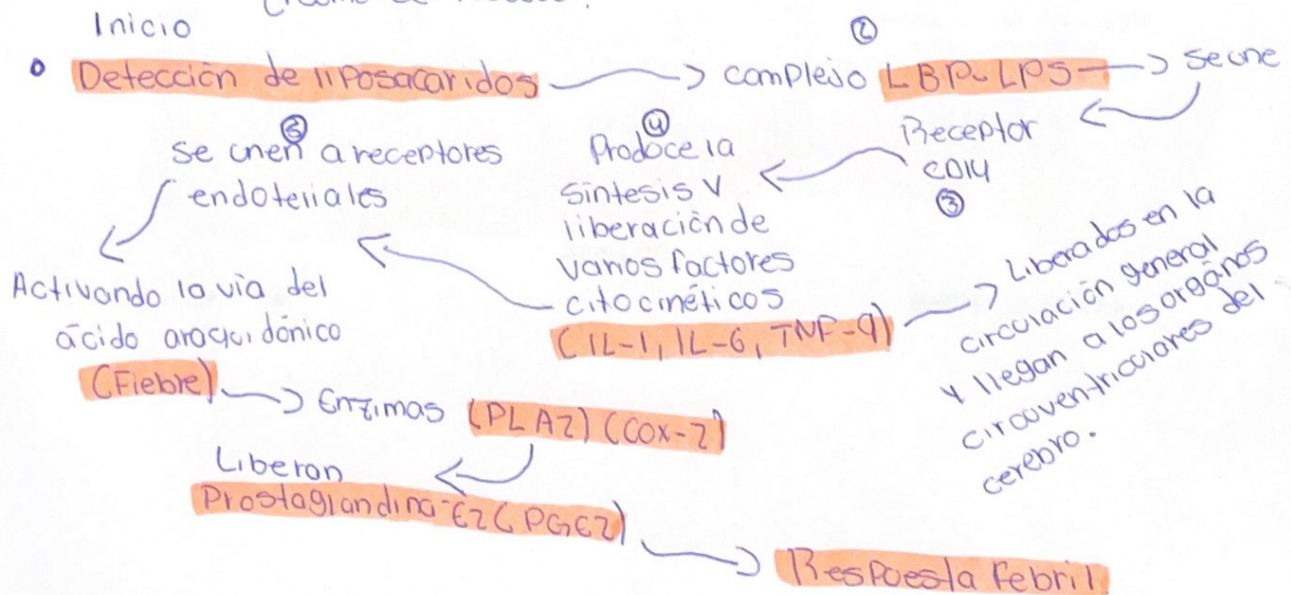 Inicio
②
• Detección de liposacaridos → complejo LBP-LPS → se une
Receptor
CD14
③
④
Produce la
síntesis y
liberación de
varios factores
citocinéticos
(IL-1, IL-6, TNF-α)
→ Liberados en la
circulación general
y llegan a los orgános
circuventriculares del
cerebro.
⑤
se unen a receptores
endoteliales
Activando la vía del
ácido araquidónico
(Fiebre) → Enzimas (PLA2) (COX-2)
Liberan
Prostaglandina-E2 (PGE2)
→ Respuesta Febril